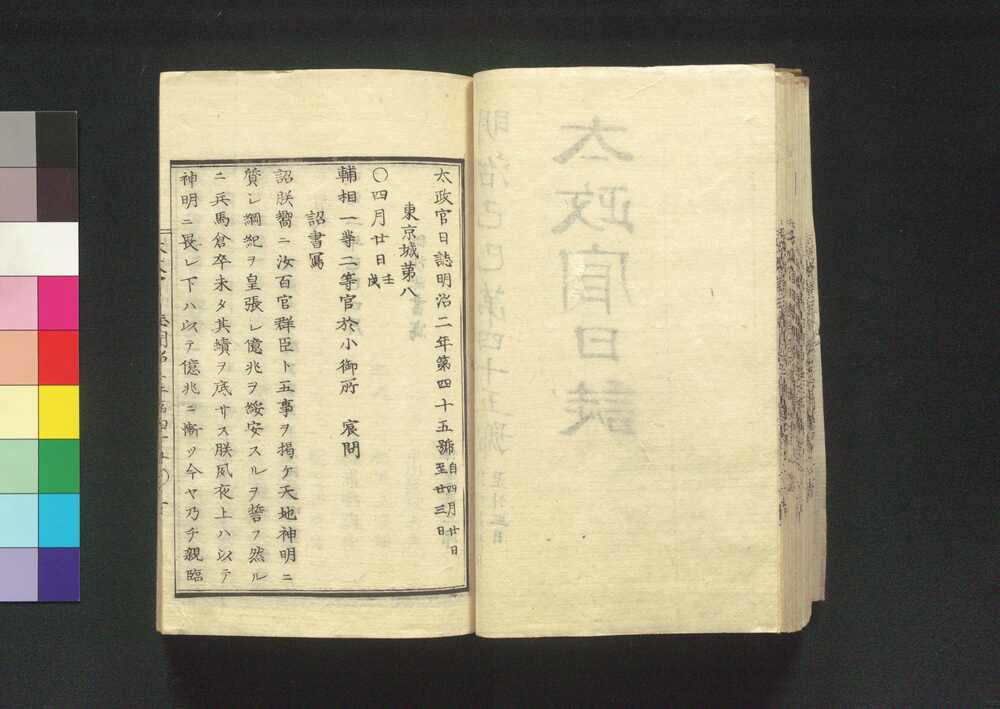 太政官日誌明治二年第四十五號自四月廿日至廿三日
東京城第八
〇四月廿日壬戌
輔相一等二等官於小御所　宸問
詔書寫
詔朕嚮ニ汝百官群臣ト五事ヲ掲ケ天地神明ニ
質シ綱紀ヲ皇張シ億兆ヲ綏安スルヲ誓フ然ル
ニ兵馬倉卒未タ其績ヲ底サス朕夙夜上ハ以テ
神明ニ畏レ下ハ以テ億兆ニ慚ツ今ヤ乃チ親臨
太政官日誌
明治己巳第四十五號